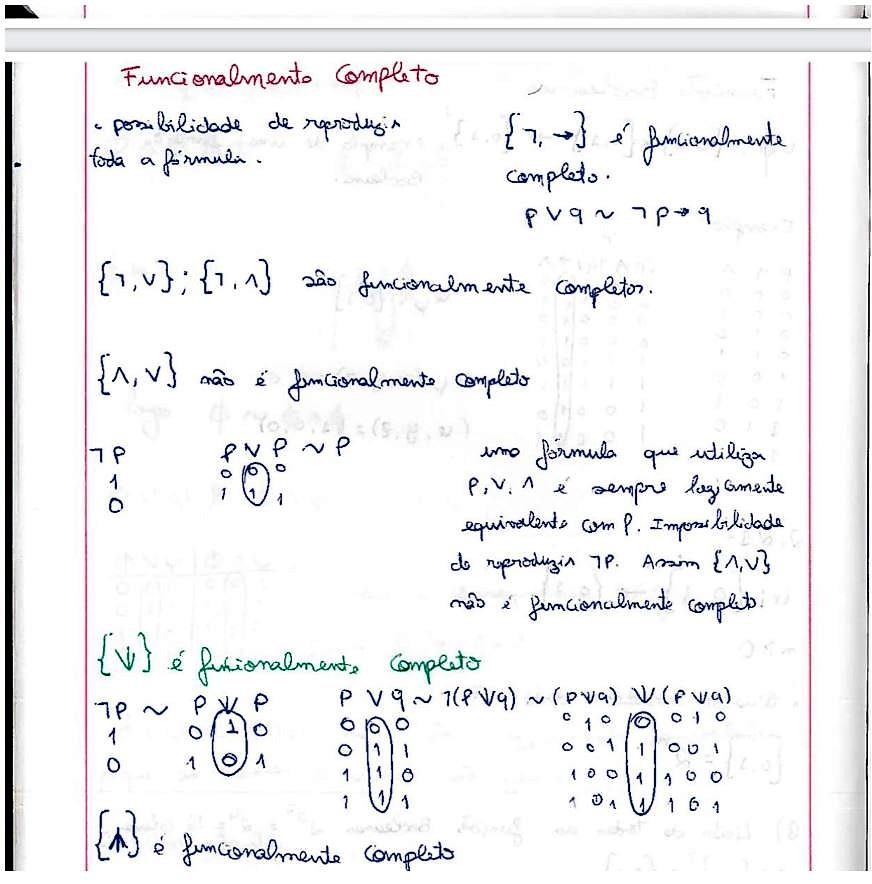 Funcionalmente Completo
• possibilidade de reproduzir
toda a fórmula.
{¬, →} é funcionalmente
completo.
p ∨ q ~ ¬p → q
{¬, ∨} ; {¬, ∧} são funcionalmente completos.
{∧, ∨} não é funcionalmente completo
¬P
1
0
P ∨ P ~ P
0 0 0
1 1 1
uma fórmula que utiliza
P, ∨, ∧ é sempre logicamente
equivalente com P. Impossibilidade
de reproduzir ¬P. Assim {∧,∨}
não é funcionalmente completo.
{ψ} é funcionalmente completo
¬P ~ P ψ P
1 0 1 0
0 1 0 1
P ∨ q ~ ¬(P ψ q) ~ (P ψ q) ψ (P ψ q)
0 0 0 0 1 0 0 0 1 0
0 1 1 0 0 1 1 0 0 1
1 1 0 1 0 0 1 1 0 0
1 1 1 1 0 1 1 1 0 1
{⩚} é funcionalmente completo